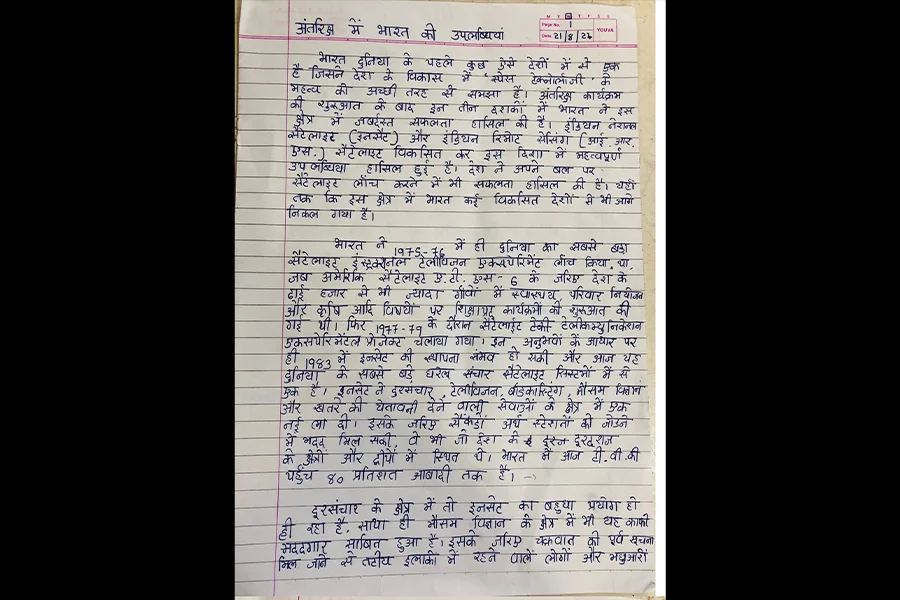 M T W T F S S
Page No.: 1
Date: 21/8/24
YOUVA
अंतरिक्ष में भारत की उपलब्धियां
भारत दुनिया के पहले कुछ ऐसे देशों में से एक
है जिसने देश के विकास में 'स्पेस टेक्नोलॉजी' के
महत्व की अच्छी तरह से समझा है। अंतरिक्ष कार्यक्रम
की शुरुआत के बाद इन तीन दशकों में भारत ने इस
क्षेत्र में जबर्दस्त सफलता हासिल की है। इंडियन नेशनल
सैटेलाइट (इनसैट) और इंडियन रिमोट सेंसिंग (आई.आर.
एस.) सैटेलाइट विकसित कर इस दिशा में महत्वपूर्ण
उपलब्धियां हासिल हुई है। देश ने अपने बल पर
सैटेलाइट लॉच करने में भी सफलता हासिल की है। यहाँ
तक कि इस क्षेत्र में भारत कई विकसित देशों से भी आगे
निकल गया है।
भारत ने 1975-76 में ही दुनिया का सबसे बड़ा
सैटेलाइट इंस्ट्रक्शनल टेलीविजन एक्सपेरिमेंट लॉच किया था,
जब अमेरिकि सैटेलाइट ए.टी. एस- 6 के जरिए देश के
ढाई हजार से भी ज्यादा गाँवों में स्वास्थ्य, परिवार नियोजन
और कृषि आदि विषयों पर शिक्षाप्रद कार्यक्रमों की शुरुआत की
गई थी। फिर 1977-79 के दौरान सैटेलाइट टेली टेलीकम्युनिकेशन
एक्सपेरिमेंटल प्रोजेक्ट चलाया गया। इन अनुभवों के आधार पर
ही 1983 में इनसेट की स्थापना संभव हो सकी और आज यह
दुनिया के सबसे बड़े घरेलू संचार सैटेलाइट सिस्टमों में से
एक है। इनसेट ने दुरसंचार, टेलीविजन, ब्रॉडकास्टिंग, मौसम विज्ञान
और खतरे की चेतावनी देने वाली सेवाओं के क्षेत्र में एक
नई जा दी। इसके जरिए सैंकड़ों अर्थ स्टेशनों को जोड़ने
में मदद मिल सकी, वो भी जो देश के दूरदराज
के क्षेत्रों और द्वीपों में स्थित थे। भारत में आज टी.वी.की
पहुँच ८० प्रतिशत आबादी तक है।
दूरसंचार के क्षेत्र में तो इनसेट का बहुधा प्रयोग हो
ही रहा है, साथ ही मौसम विज्ञान के क्षेत्र में भी यह काफी
मददगार साबित हुआ है। इसके जरिए चक्रवात की पूर्व सूचना
मिल जाने से तटीय इलाकों में रहने वाले लोगों और मछुआरों